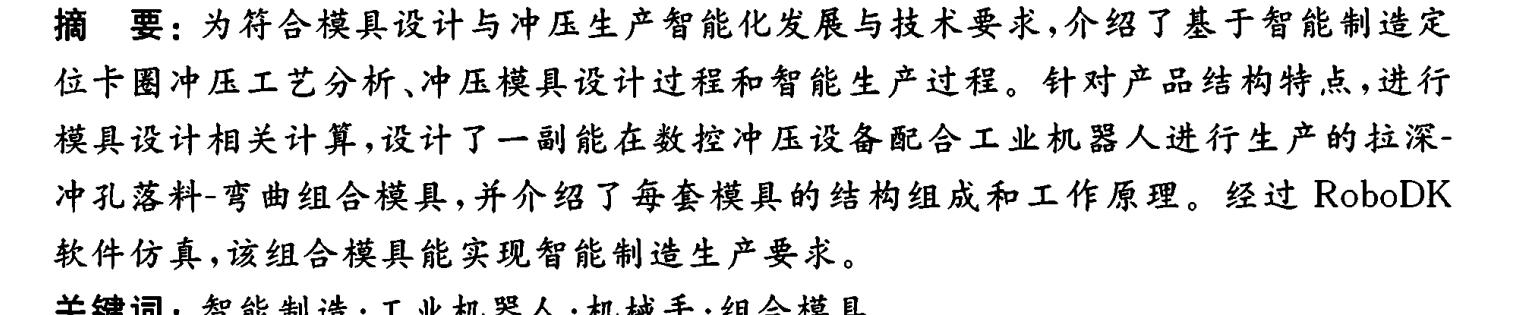 摘　要：为符合模具设计与冲压生产智能化发展与技术要求,介绍了基于智能制造定
位卡圈冲压工艺分析、冲压模具设计过程和智能生产过程。针对产品结构特点,进行
模具设计相关计算,设计了一副能在数控冲压设备配合工业机器人进行生产的拉深-
冲孔落料-弯曲组合模具,并介绍了每套模具的结构组成和工作原理。经过 RoboDK
软件仿真,该组合模具能实现智能制造生产要求。
关键词：智能制造;工业机器人;机械手;组合模具